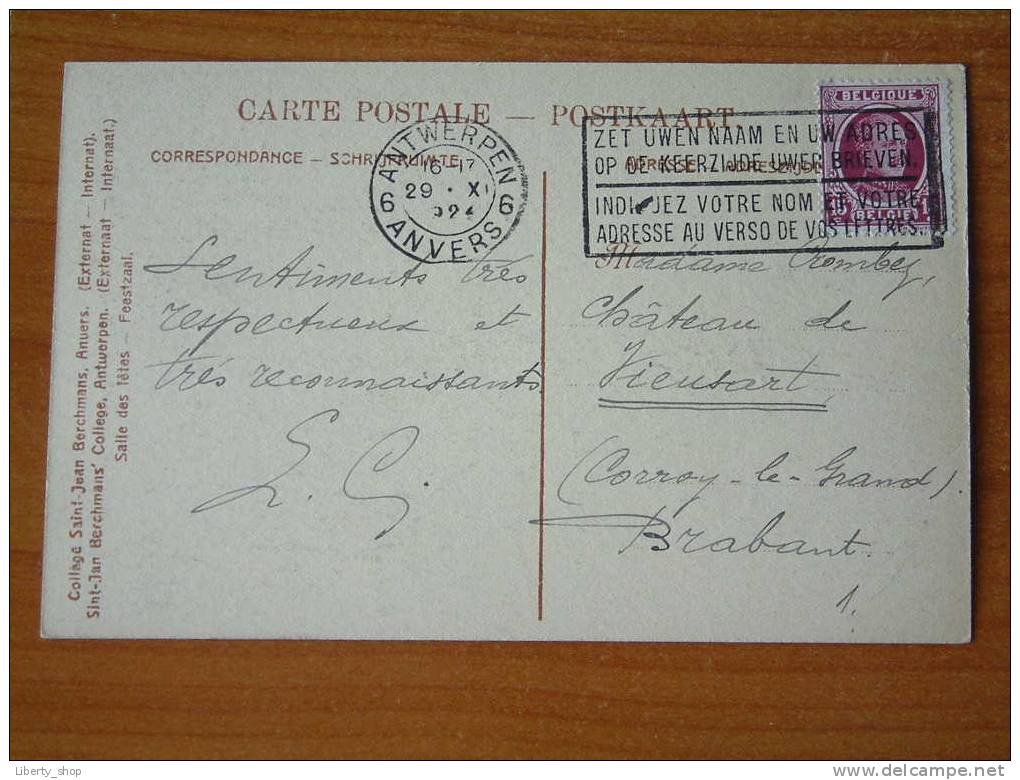 CARTE POSTALE — POSTKAART
CORRESPONDANCE – SCHRIJFRUIMTE
ANTWERPEN
16-17
29 · XI
6 6
ANVERS
BELGIQUE
BELGIË
ZET UWEN NAAM EN UW ADRES
OP DE KEERZIJDE UWER BRIEVEN.
INDIQUEZ VOTRE NOM ET VOTRE
ADRESSE AU VERSO DE VOS LETTRES.
Collège Saint-Jean Berchmans, Anvers. (Externat — Internat).
Sint-Jan Berchmans' College, Antwerpen. (Externaat — Internaat.)
Salle des fêtes — Feestzaal.
Sentiments très
respectueux et
très reconnaissants
L. G.
Madame
Château de
Vieusart,
(Corroy-le-Grand).
Brabant.
1.
Liberty_shop
delcampe.net